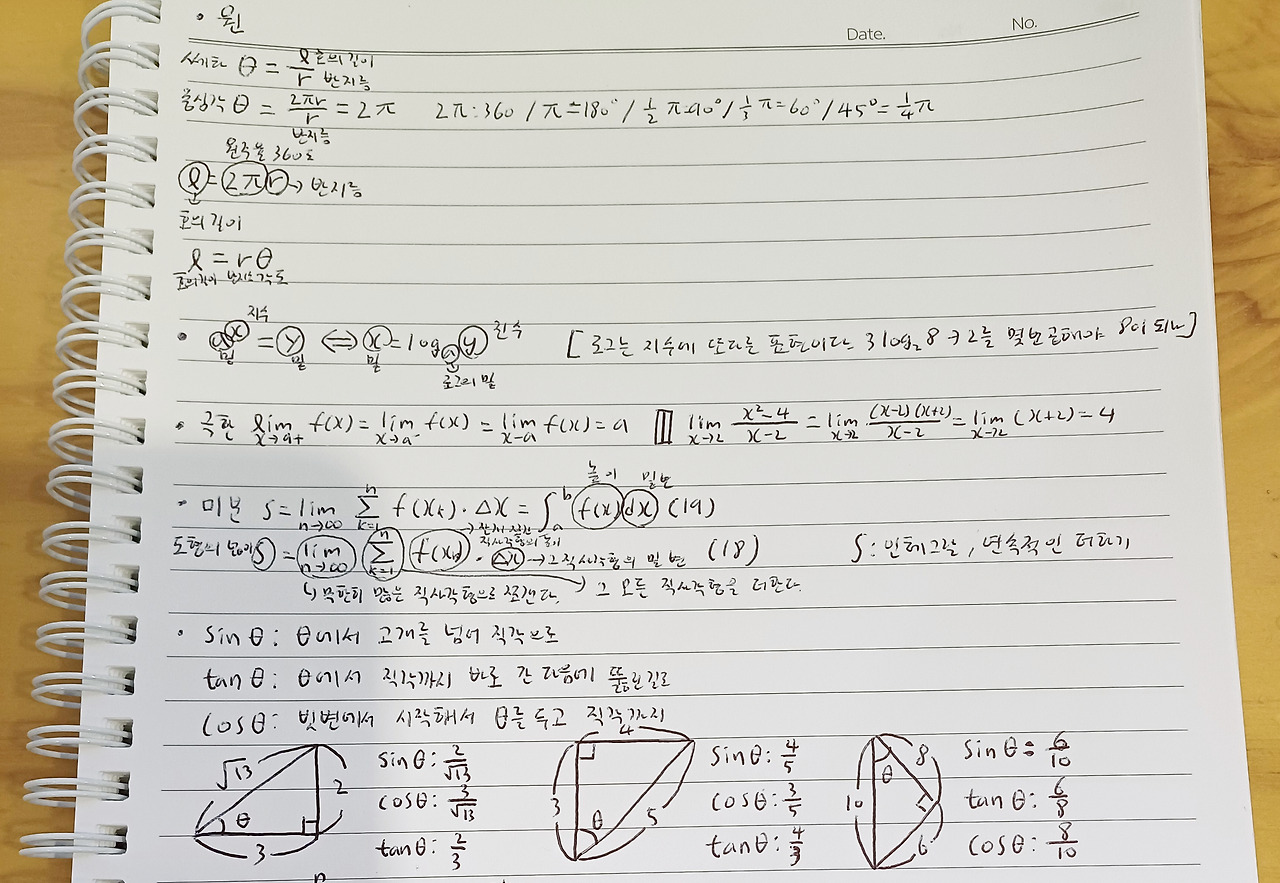 • 원
Date. No.
θ = l/r 호의 길이 반지름
중심각 θ = 2πr/r = 2π 2π:360 / π=180° / 1/2 π=90° / 1/3 π=60° / 45°=1/4 π
반지름
원주율 360도
l = 2πr → 반지름
호의 길이
l = rθ
호의 길이 반지름 각도
• a^x = y ⇔ x = log_a y [로그는 지수에 또다른 표현이다 3 log₂ 8 → 2를 몇번 곱해야 8이 되나]
지수 밑 밑 밑 진수
로그의 밑
• 극한 lim x→a+ f(x) = lim x→a- f(x) = lim x-a f(x) = a lim x→2 x²-4/x-2 = lim x→2 (x-2)(x+2)/x-2 = lim x→2 (x+2) = 4
높이 밑변
• 미분 S = lim n→∞ Σ k=1 n f(xₖ)·Δx = ∫ a b f(x) dx (19)
직사각형의 높이
도형의 넓이 S = lim n→∞ Σ k=1 n f(xₖ)·Δx → 그 직사각형의 밑변 (18) ∫: 인테그랄, 연속적인 더하기
↳ 무한히 많은 직사각형으로 쪼갠다. → 그 모든 직사각형을 더한다.
• sin θ: θ에서 고개를 넘어 직각으로
tan θ: θ에서 직각까지 바로 간 다음에 뚫린길로
cos θ: 빗변에서 시작해서 θ를 두고 직각까지
√13 2 θ 3
sin θ: 2/√13
cos θ: 3/√13
tan θ: 2/3
4 3 θ 5
sin θ: 4/5
cos θ: 3/5
tan θ: 4/3
8 θ 10 6
sin θ: 6/10
tan θ: 6/8
cos θ: 8/10